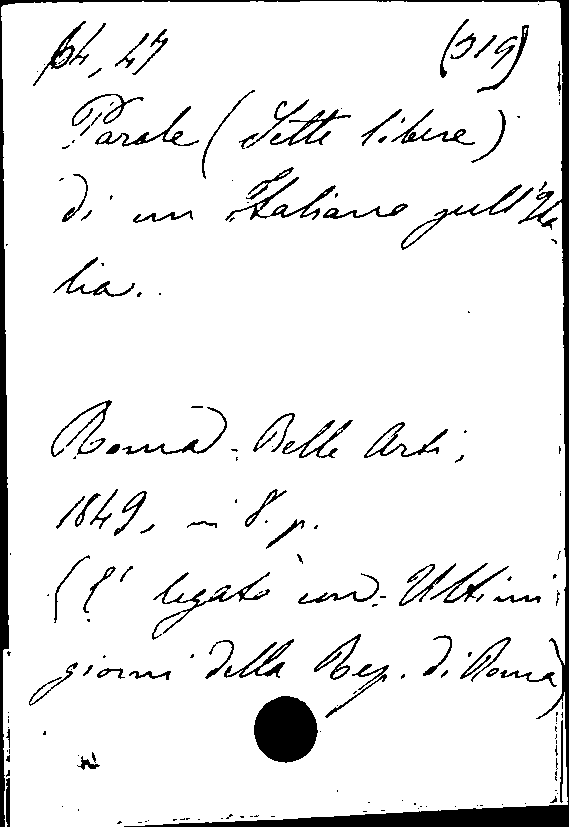 64, 47 (319)
Parole (Sette libere)
di un Italiano sull'Ita
lia.
Roma - Belle Arti,
1849, in 8. p.
(È legato con: Ultimi
giorni della Rep. di Roma)